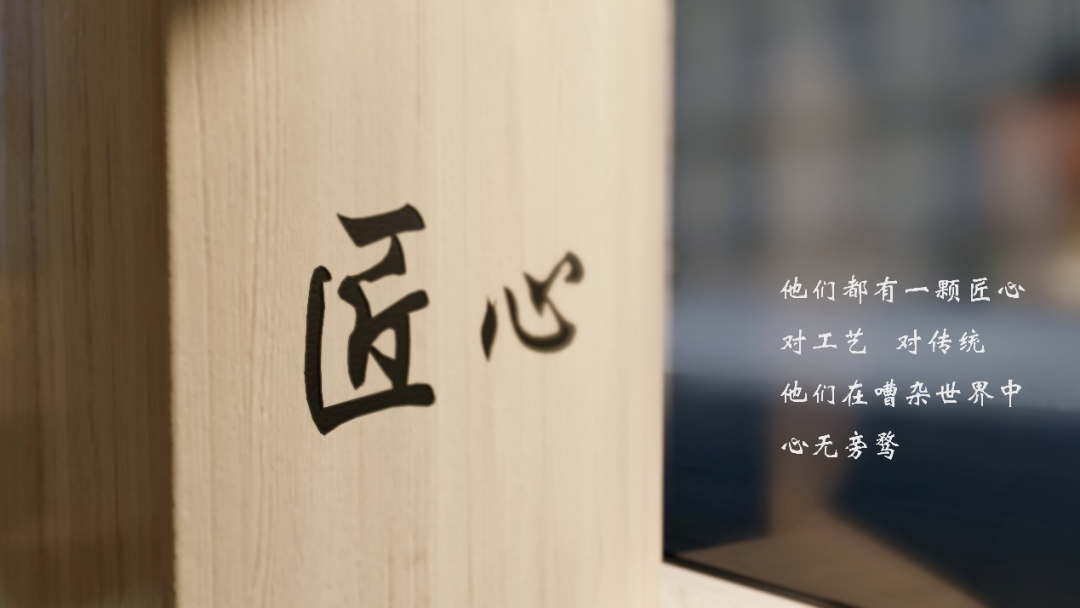 匠心
他们都有一颗匠心
对工艺 对传统
他们在嘈杂世界中
心无旁骛